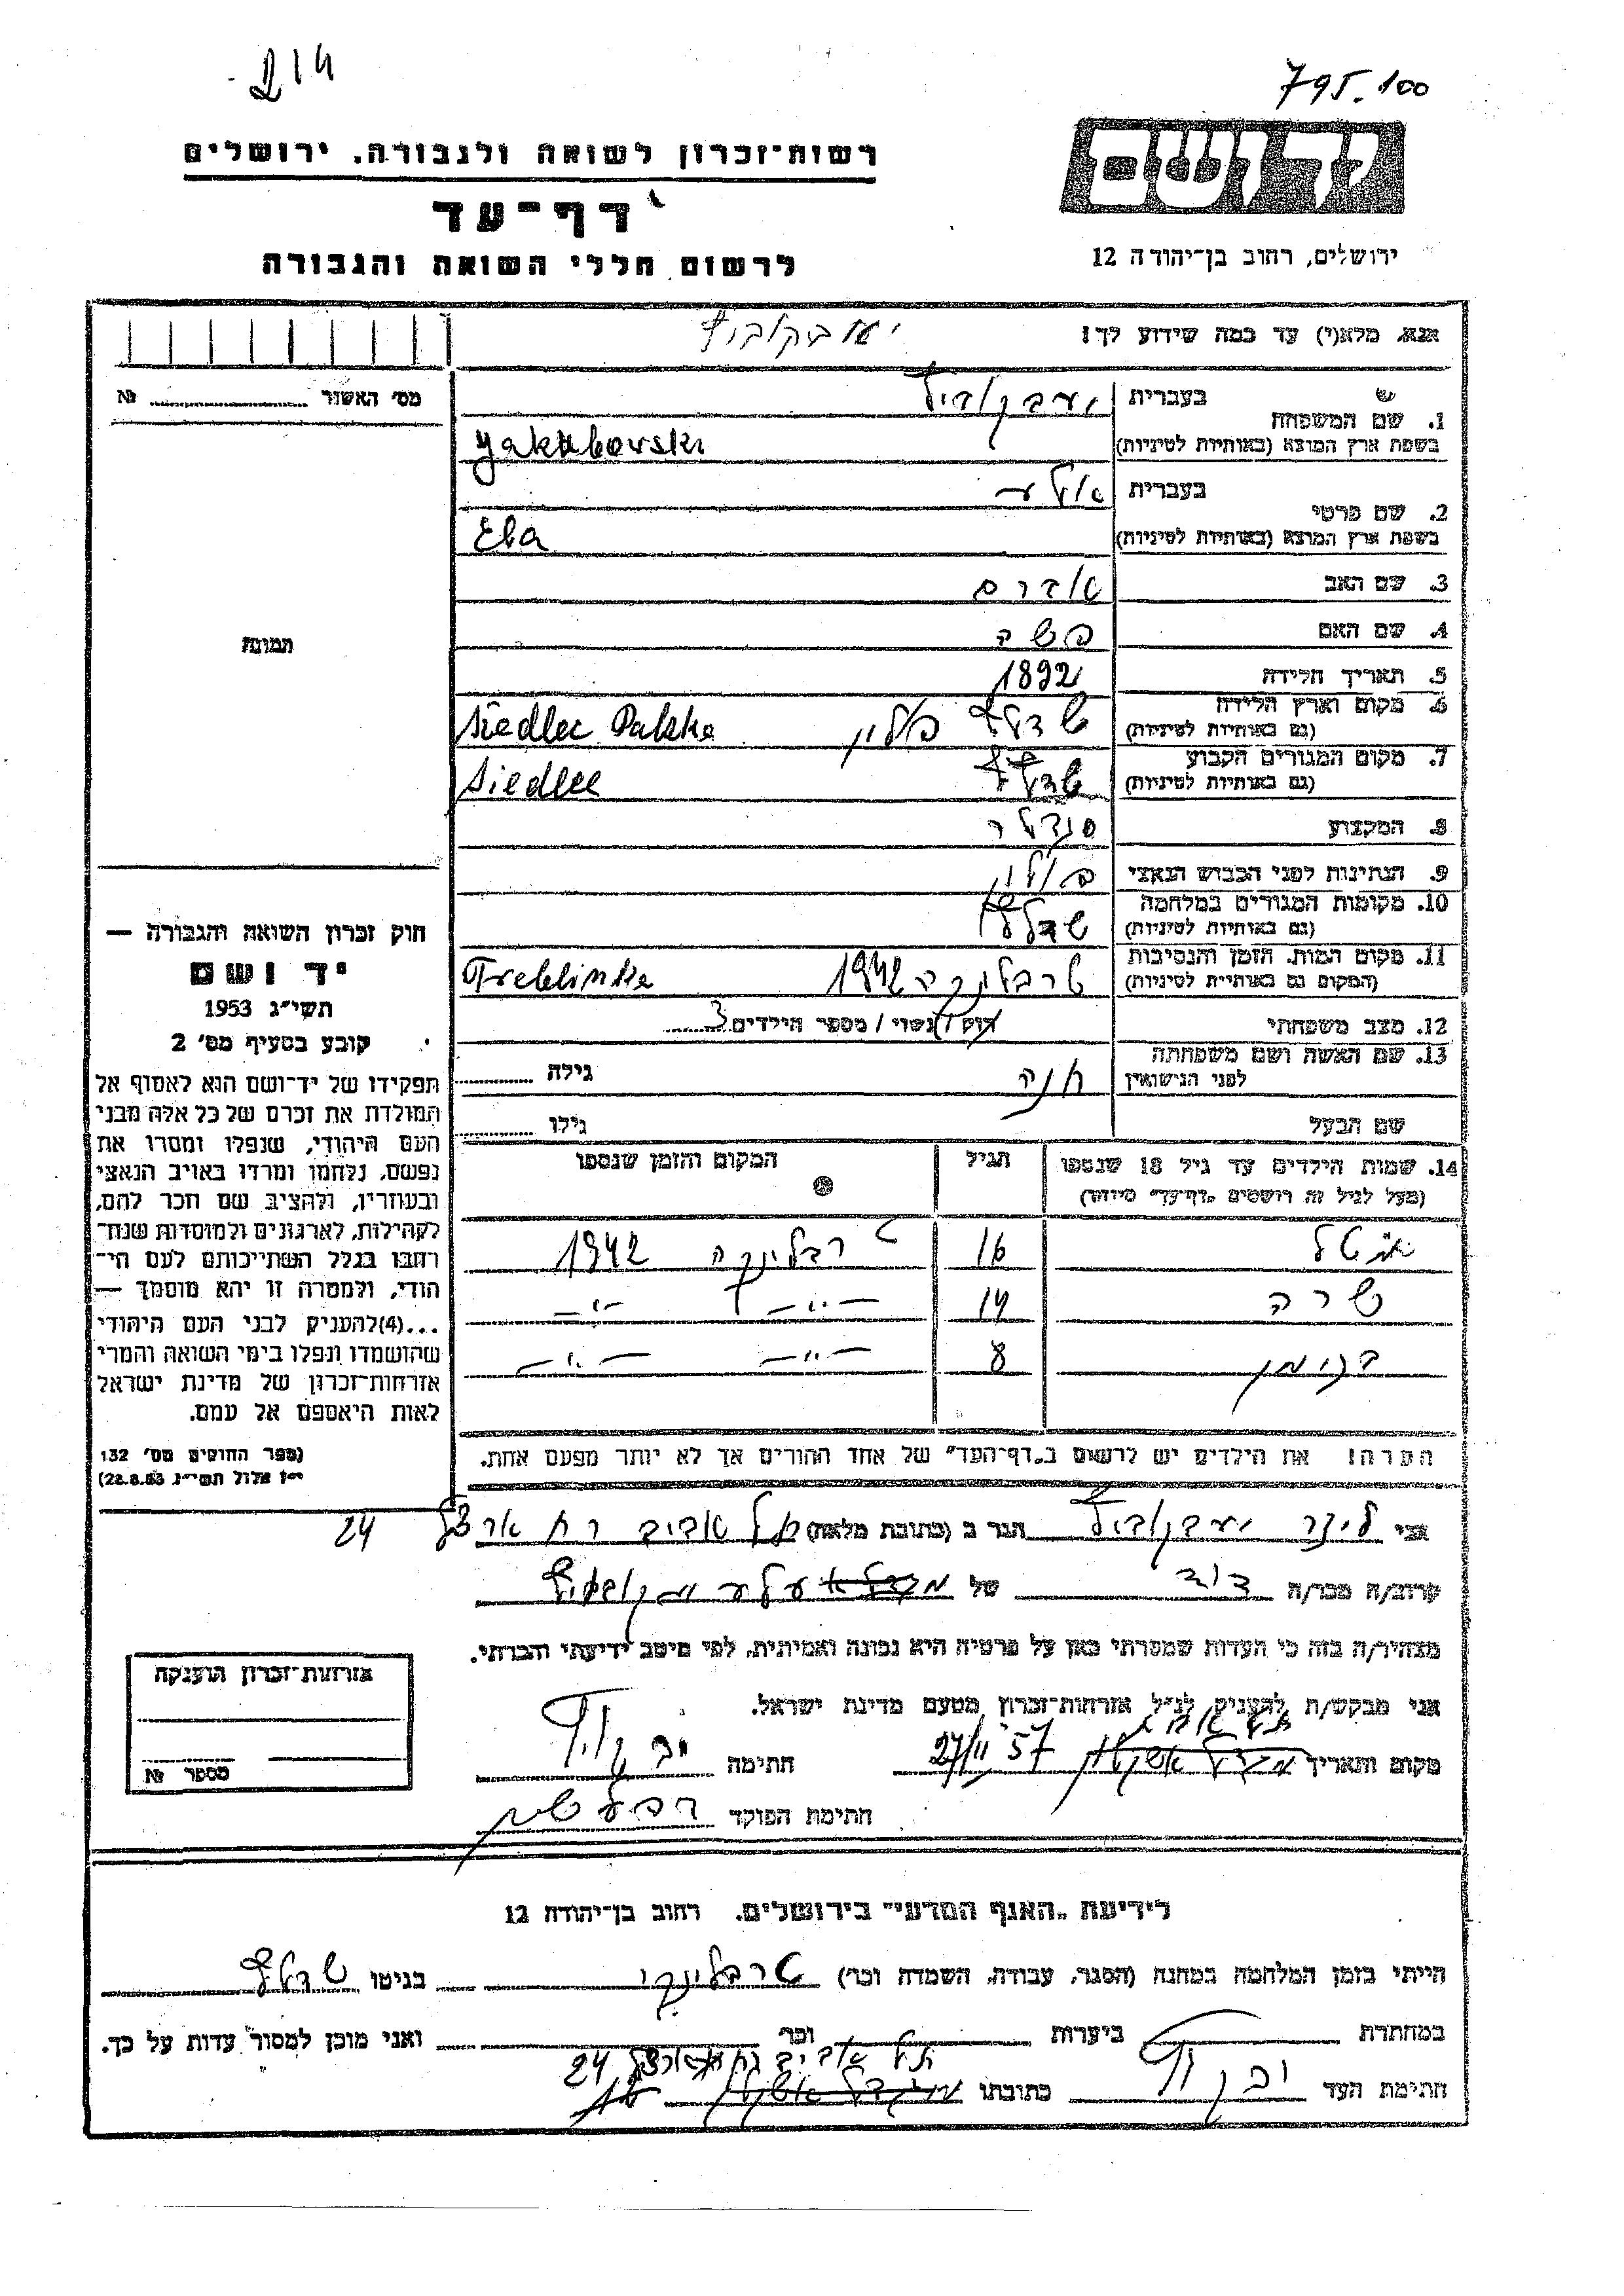 214
795.100
יד ושם
רשות-זכרון לשואה ולגבורה. ירושלים
דף-עד
לרשום חללי השואה והגבורה
ירושלים, רחוב בן-יהודה 12
אנא. מלא(י) עד כמה שידוע לך!
מס׳ האשור № 
1. שם המשפחה
בעברית
בשפת ארץ המוצא (באותיות לטיניות) Jakubowski
2. שם פרטי
בעברית
בשפת ארץ המוצא (באותיות לטיניות) Ela
3. שם האב
4. שם האם פשה
5. תאריך הלידה 1892
6. מקום וארץ הלידה
(גם באותיות לטיניות) שדלץ פולין Siedlec Polska
7. מקום המגורים הקבוע
(גם באותיות לטיניות) שדלץ Siedlec
8. המקצוע סנדלר
9. הנתינות לפני הכבוש הנאצי פולין
10. מקומות המגורים במלחמה
(גם באותיות לטיניות) שדלץ
11. מקום המות. הזמן והנסיבות
(המקום גם באותיות לטיניות) טרבלינקה 1942 Treblinka
12. מצב משפחתי רווק / נשוי / מספר הילדים 3
13. שם האשה ושם משפחתה
לפני הנישואין חנה גילה
שם הבעל גילו
14. שמות הילדים עד גיל 18 שנספו
(מעל לגיל זה רושמים "דף-עד" מיוחד)
הגיל
המקום והזמן שנספו
16 טרבלינקה 1942
שרה 14 -"- -"-
בנימן 8 -"- -"-
הערה! את הילדים יש לרשום ב"דף-העד" של אחד ההורים אך לא יותר מפעם אחת.
תמונה
חוק זכרון השואה והגבורה —
יד ושם
תשי״ג 1953
קובע בסעיף מס׳ 2
תפקידו של יד-ושם הוא לאסוף אל
המולדת את זכרם של כל אלה מבני
העם היהודי, שנפלו ומסרו את
נפשם, נלחמו ומרדו באויב הנאצי
ובעוזריו, ולהציב שם וזכר להם,
לקהילות, לארגונים ולמוסדות שנח-
רבו בגלל השתייכותם לעם הי-
הודי, ולמטרה זו יהא מוסמך —
...(4) להעניק לבני העם היהודי
שהושמדו ונפלו בימי השואה והמרי
אזרחות-זכרון של מדינת ישראל
לאות היאספם אל עמם.
(ספר החוקים מס׳ 132
י״ז אלול תשי״ג 28.8.53)
אני הגר ב (כתובת מלאה) תל אביב 24
קרוב/ה מכר/ה דוד של
מצהיר/ה בזה כי העדות שמסרתי כאן על פרטיה היא נכונה ואמיתית, לפי מיטב ידיעתי והכרתי.
אני מבקש/ת להעניק לנ״ל אזרחות-זכרון מטעם מדינת ישראל.
מקום ותאריך תל אביב חתימה
חתימת הפוקד
אזרחות-זכרון הוענקה
מספר №
לידיעת "האגף המדעי" בירושלים. רחוב בן-יהודה 12
הייתי בזמן המלחמה במחנה (הסגר, עבודה, השמדה וכו׳) טרבלינקי בגיטו שדלץ
במחתרת ביערות וכו׳ ואני מוכן למסור עדות על כך.
תל אביב 24
חתימת העד כתובתו